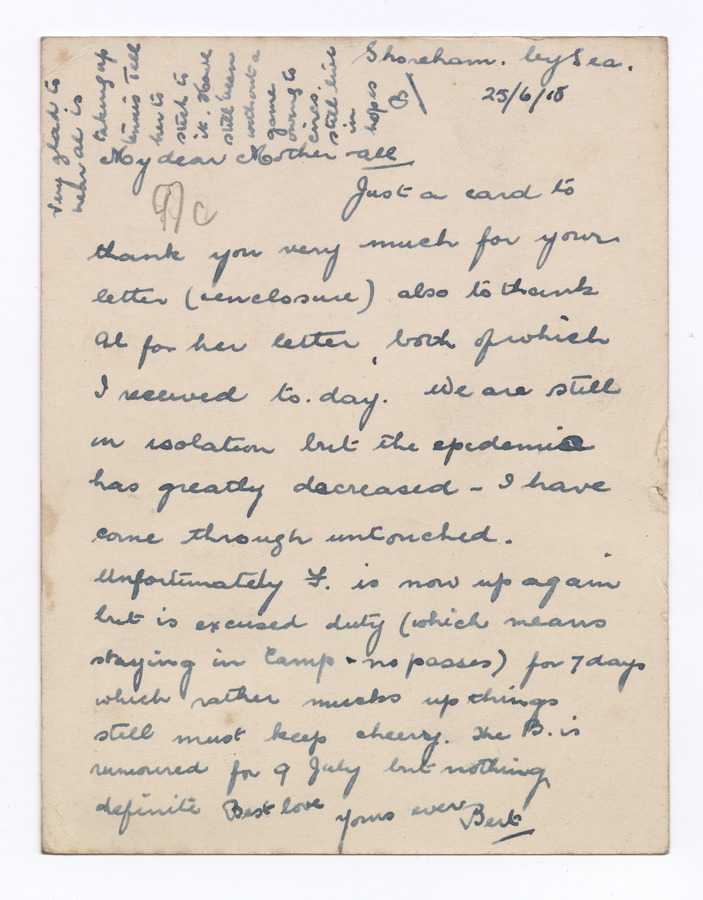 Shoreham. by Sea.
25/6/18
My dear Mother all
Just a card to
thank you very much for your
letter (& enclosure) also to thank
Al for her letter, both of which
I received to.day. We are still
in isolation but the epidemic
has greatly decreased - I have
come through untouched.
Unfortunately F. is now up again
but is excused duty (which means
staying in Camp & no passes) for 7 days
which rather mucks up things
still must keep cheery. The B. is
rumoured for 9 July but nothing
definite Best love
yours ever
Bert
Very glad to
hear Al is
taking up
tennis Tell
her to
stick to
it. Have
still been
without a
game
owing to
circs.
still live
in
hopes
B